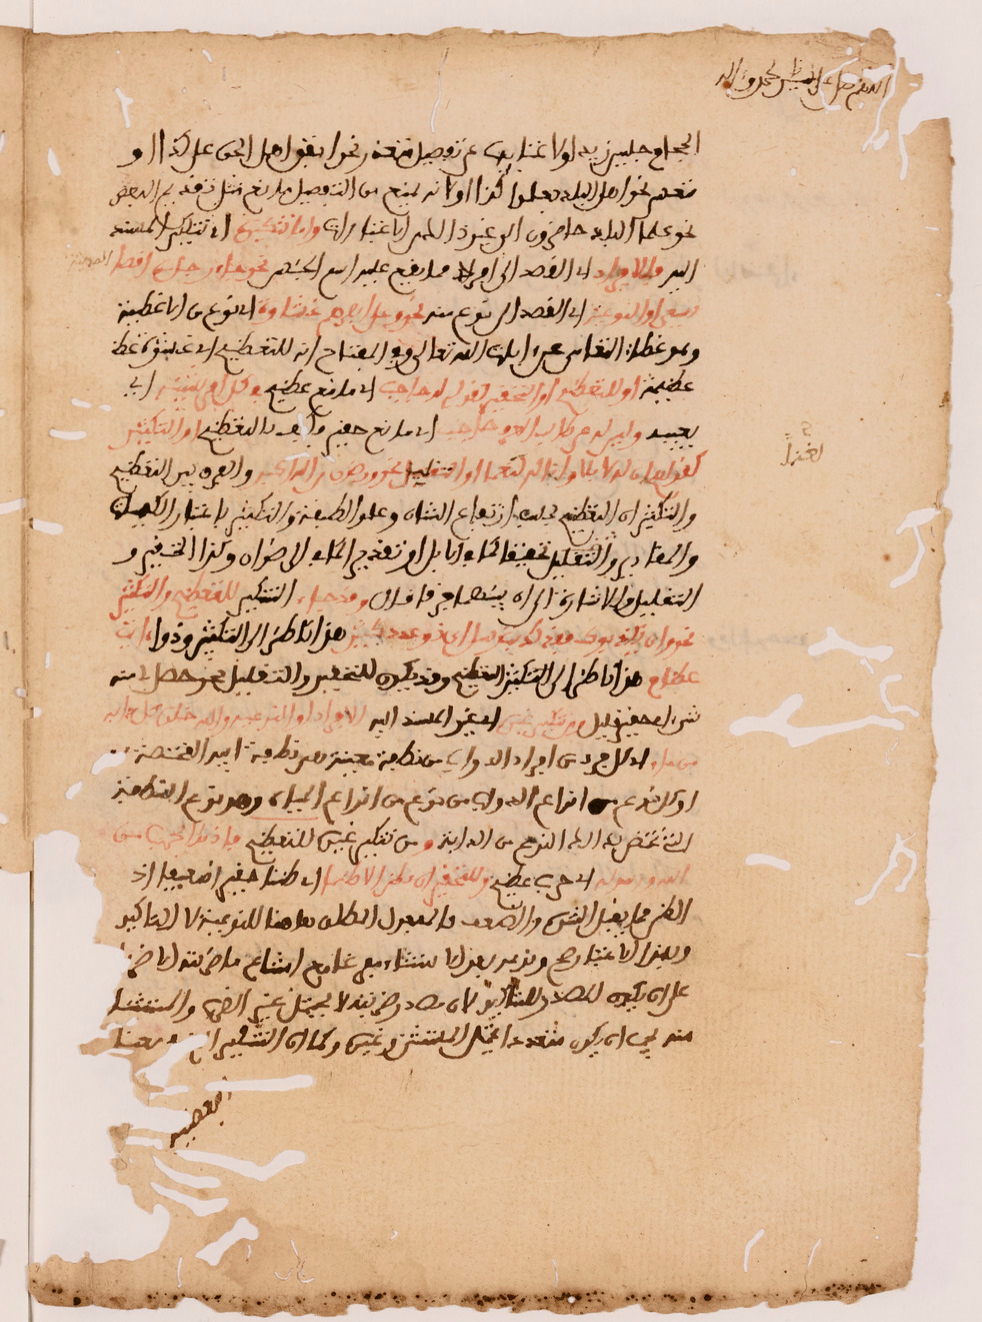 الجماع جليس زيد أولا غنايه عن تفصيل متعذر نحو اتفق اهل الحق على كذا او
متعسر نحو اهل البلد فعلوا كذا اولانه يمنع من التفصيل مانع مثل تقديم البعض
نحو علماء البلد حاضرون الى غير ذلك من الاعتبارات واما تنكيره اي تنكير المسند
اليه فللافراد اي القصد الى فرد مما يقع عليه اسم الجنس نحو وجاء رجل من اقصا المدينة
يسعى او النوعية اي القصد الى نوع منه نحو وعلى ابصارهم غشاوة اي نوع من الاغطية
وهو غطاء التعامي عن ايات الله تعالى وفي المفتاح انه للتعظيم اي غشاوة
عظيمة او للتعظيم او التحقير كقوله له حاجب اي مانع عظيم في كل امر يشينه اي
يعيبه وليس له عن طالب العرف حاجب اي مانع حقير فكيف بالعظيم او التكثير
كقولهم ان له لابلا وان له لغنما او التقليل نحو ورضوان من الله اكبر والفرق بين التعظيم
والتكثير ان التعظيم بحسب ارتفاع الشان وعلو الطبقة والتكثير باعتبار الكميات
والمقادير والتقليل تحقيقا كما في الابل او تقديرا كما في الرضوان وكذا التحقير و
التقليل وللاشارة الى ان بينهما فرقا قال وقد جاء التنكير للتعظيم والتكثير
نحو وان يكذبوك فقد كذبت رسل اي ذو عدد كثير هذا ناظر الى التكثير وذوا ايات
عظام هذا ناظر الى التعظيم وقد يكون للتحقير والتقليل نحو حصل لي منه
شيء اي حقير قليل ومن تنكير غيره اي غير المسند اليه للافراد او النوعية والله خلق كل دابة
من ماء اي كل فرد من افراد الدواب من نطفة معينة هي نطفة ابيه المختصة به
او كل نوع من انواع الدواب من نوع من انواع المياه وهو نوع النطفة
التي تختص بذلك النوع من الدابة ومن تنكير غيره للتعظيم فاذنوا بحرب من
الله ورسوله اي حرب عظيم وللتحقير ان نظن الا ظنا اي ظنا حقيرا ضعيفا اذ
الظن مما يقبل الشدة والضعف فالمفعول المطلق هاهنا للنوعية لا للتاكيد
وبهذا الاعتبار صح وقوعه بعد الاستثناء مع امتناع ما ضربته الا ضربا
على ان يكون المصدر للتاكيد لان مصدر ضربته لا يحتمل غير الضرب والمستثنى
منه يجب ان يكون متعددا يحتمل المستثنى وغيره وكما ان التنكير
لغنما